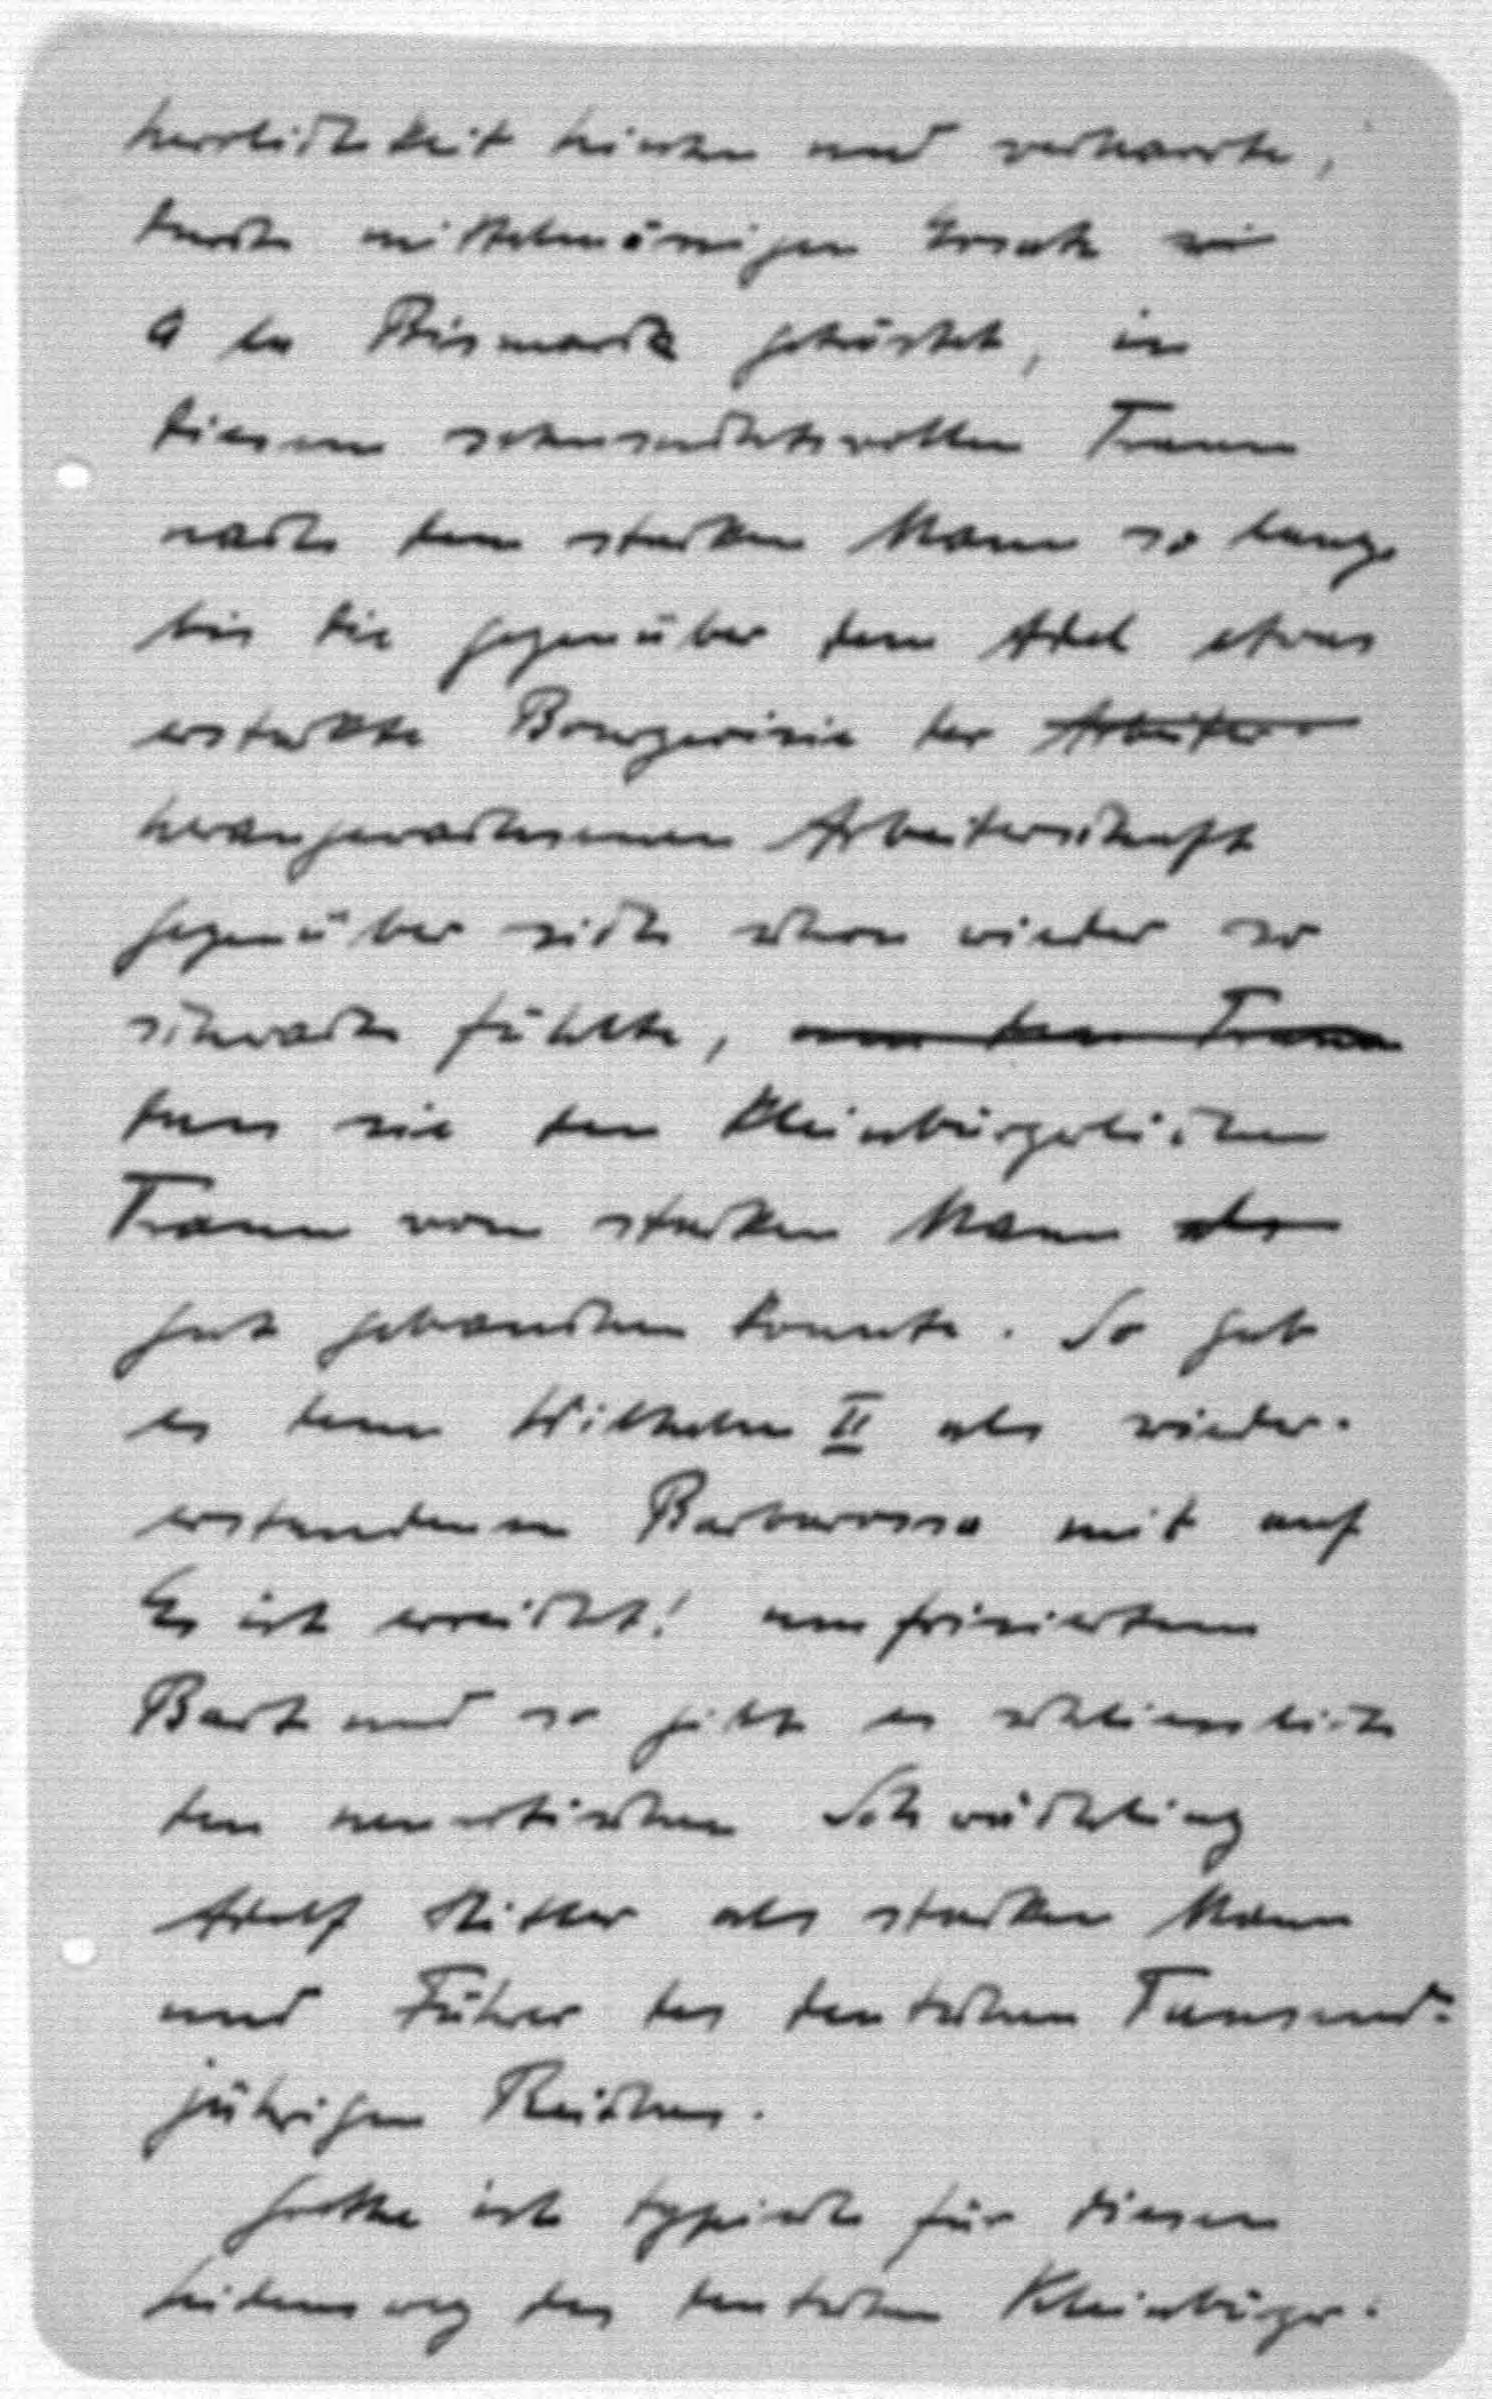 herrlichkeit hinten und verharrte,
durch mittelmässigen Ersatz wie
a la Bismarck getröstet, in
diesem sehnsuchtsvollen Traum
nach dem starken Mann so lange
bis die gegenüber dem Adel etwas
erstarkte Bourgeoisie der Arbeiter
herangewachsenen Arbeiterschaft
gegenüber sich schon wieder so
schwach fühlte, um den Traum
dass sie den kleinbürgerlichen
Traum vom starken Mann als
gut gebrauchen konnte. So gab
es denn Wilhelm II als wieder-
erstandenen Barbarossa mit auf
Es ist erreicht! umfrisiertem
Bart und so gibt es schliesslich
den neurotischen Schwächling
Adolf Hitler als starken Mann
und Führer des deutschen Tausend-
jährigen Reiches.
Goethe ist typisch für diesen
Leidensweg des deutschen Kleinbürger-